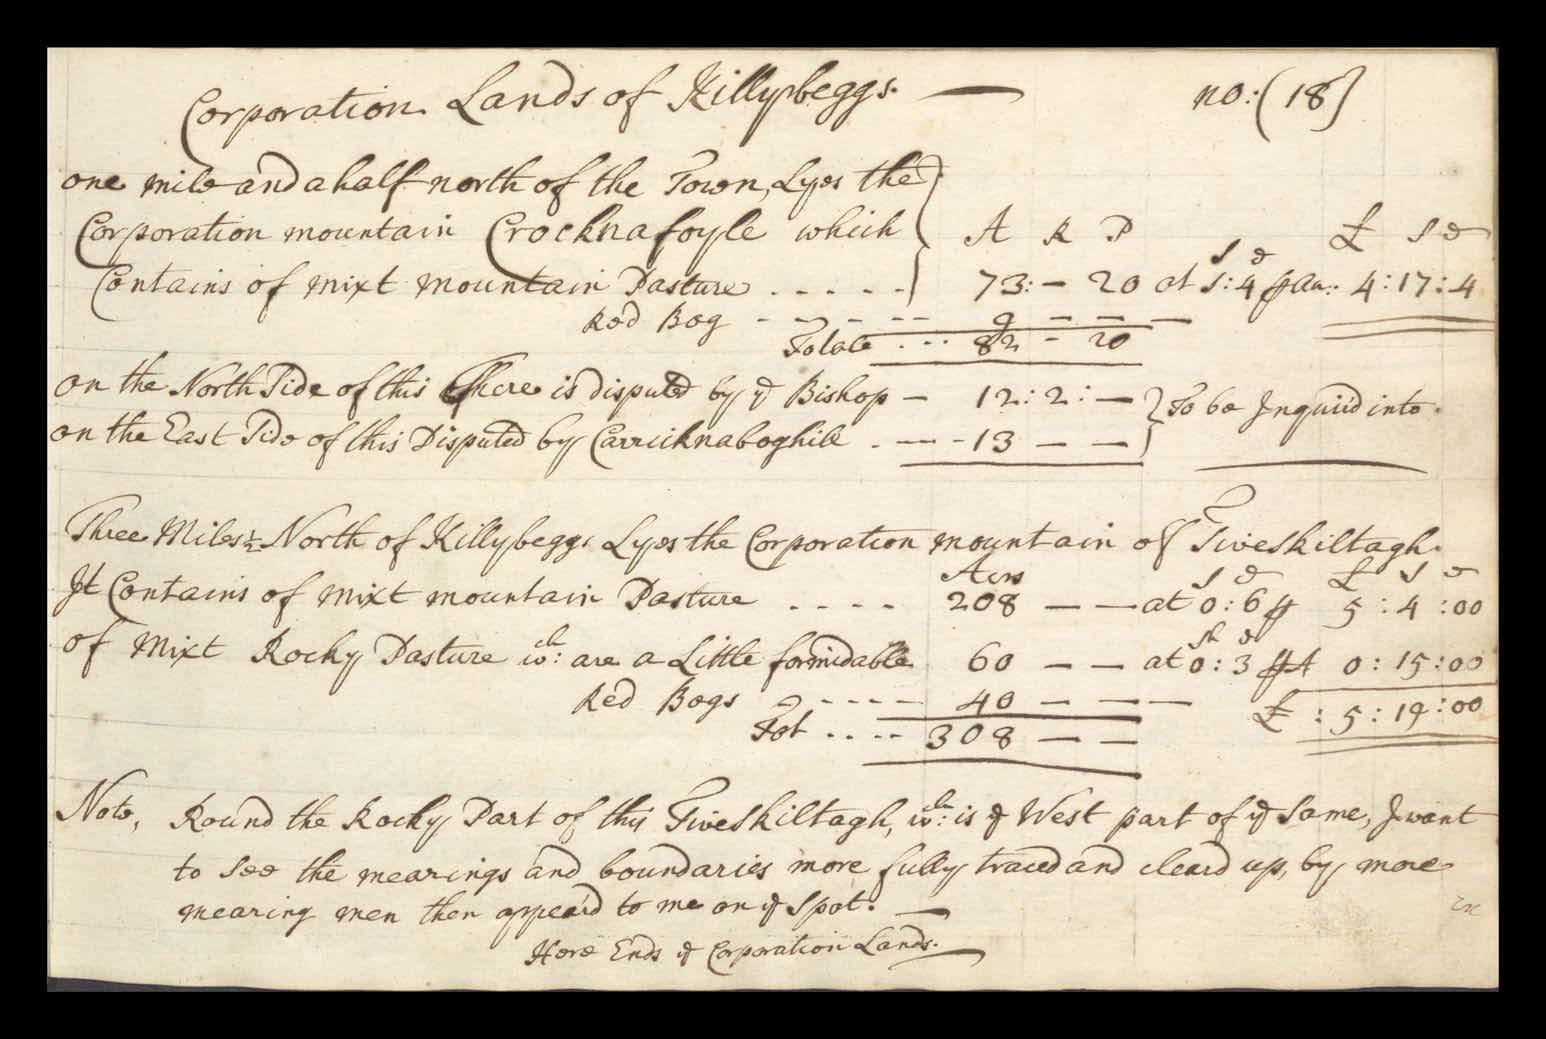 Corporation Lands of Killybeggs. — no: (18)
one mile and a half north of the Town, Lyes the
Corporation mountain Crocknafoyle which A R P £ s d
Contains of mixt mountain Pasture . . . . . 73: – 20 at 1:4 ⅌ an: 4:17:4
s d
Red Bog - - - - - 9 — — —
Totale . . . 82 - 20
on the North Side of this There is disputed by ye Bishop — 12:2: —
on the East Side of this Disputed by Carricknaboghill . — - 13 — — To be Inquir'd into.
Three Miles ½ North of Killybeggs Lyes the Corporation mountain of Tiveskiltagh.
Acrs s d £ s d
It Contains of mixt mountain Pasture . . . . 208 — — at 0:6 ⅌ 5:4:00
sh d
of Mixt Rocky Pasture wch: are a Little formidable 60 — — at 0:3 ⅌ A 0:15:00
Red Bogs - - - - - 40 — — —
Tot . . . . 308 — — £ : 5:19:00
Note, Round the Rocky Part of this Tiveskiltagh, wch: is ye West part of ye Same, I want
to see the mearings and boundaries more fully traced and cleard up, by more
mearing men then appeard to me on ye Spot. —
Here Ends ye Corporation Lands.